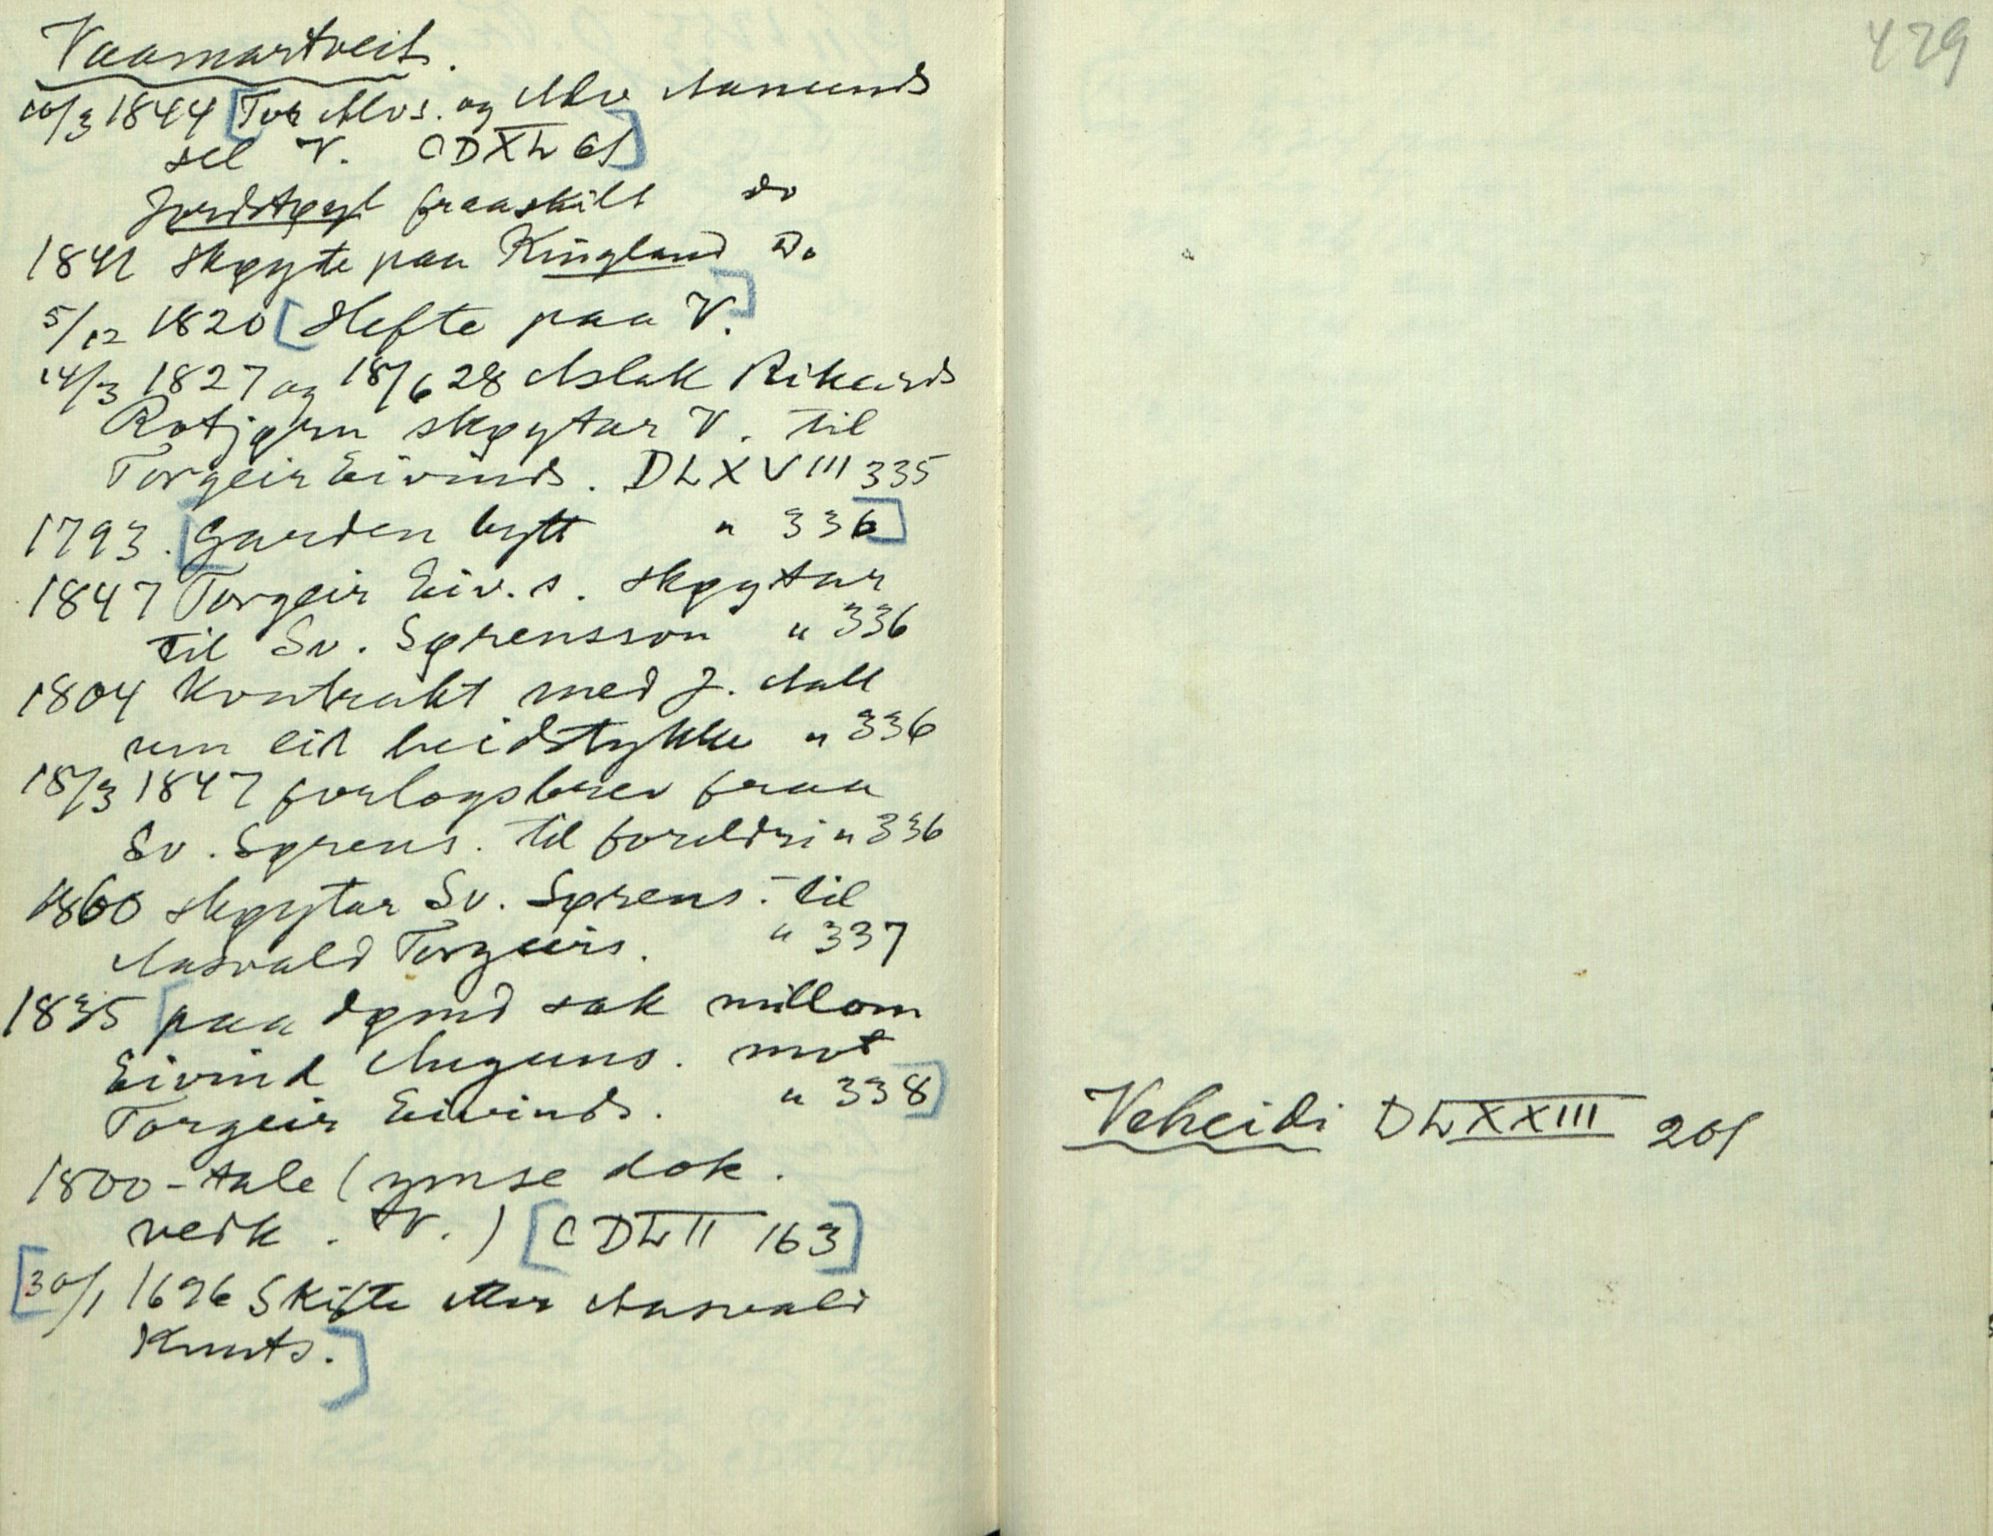 Vaamartveit.
10/3 1844 [Tor Alvs. og Alv Aamunds
sel V. CDXL 61]
Jordstøyl fraaskilt do
1841 skøyte paa Kingland Do
5/12 1820 [Hefte paa V.]
14/3 1827 og 18/6 28 Aslak Rikards
Rotjørn skøytar V. til
Torgeir Eivinds. DLXVIII 335
1793. [Garden bytt " 336]
1847 Torgeir Eiv.s. skøytar
til Sv. Sørensson " 336
1804 Kontrakt med J. Aall
um eit heidstykke " 336
18/3 1847 forlogsbrev fraa
Sv. Sørens. til foreldri " 336
1860 skøytar Sv. Sørens. til
Aasvald Torgeirs. " 337
1835 [paadømd sak millom
Eivind Auguns. mot
Torgeir Eivinds. " 338]
1800-tale (ymse dok.
vedk. V.) [CDLII 163]
[30/1 1696 Skifte etter Aasvald
Knuts.]
429
Veheidi DLXXIII 201